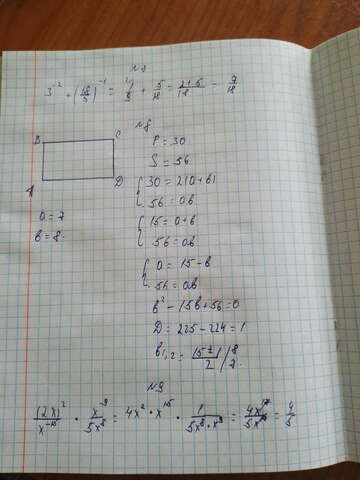 3⁻² + (18/5)⁻¹ = 1/9 + 5/18 = 2+5/18 = 9/18
№8
B C
P = 30
S = 56
A D
{ 30 = 2(a+b)
56 = ab
a = 7
b = 8
{ 15 = a+b
56 = ab
{ a = 15 - b
56 = ab
b² - 15b + 56 = 0
D = 225 - 224 = 1
b₁,₂ = 15±1/2 / 8 7
№9
(2x)²/x⁻¹⁵ · x⁻⁹/5x⁸ = 4x² · x¹⁵ · 1/5x⁸·x⁹ = 4x¹⁷/5x¹⁷ = 4/5